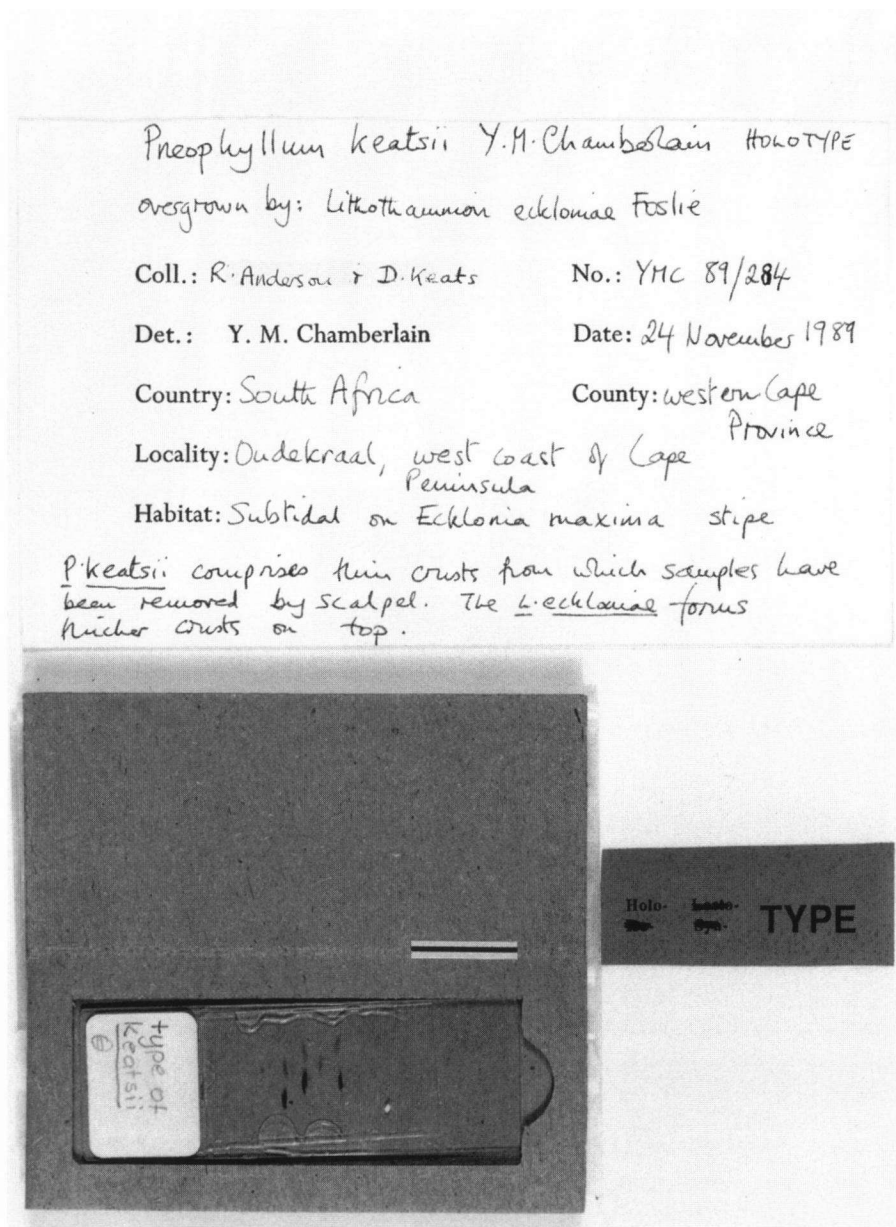 Pneophyllum keatsii Y.M.Chamberlain HOLOTYPE
overgrown by: Lithothamnion eckloniae Foslie
Coll.: R. Anderson + D. Keats No.: YMC 89/284
Det.: Y. M. Chamberlain Date: 24 November 1989
Country: South Africa County: western Cape
Province
Locality: Oudekraal, west coast of Cape
Peninsula
Habitat: Subtidal on Ecklonia maxima stipe
P. keatsii comprises thin crusts from which samples have
been removed by scalpel. The L. eckloniae forms
thicker crusts on top.
Holo- Lecto- TYPE
Syn-
type of
keatsii
6